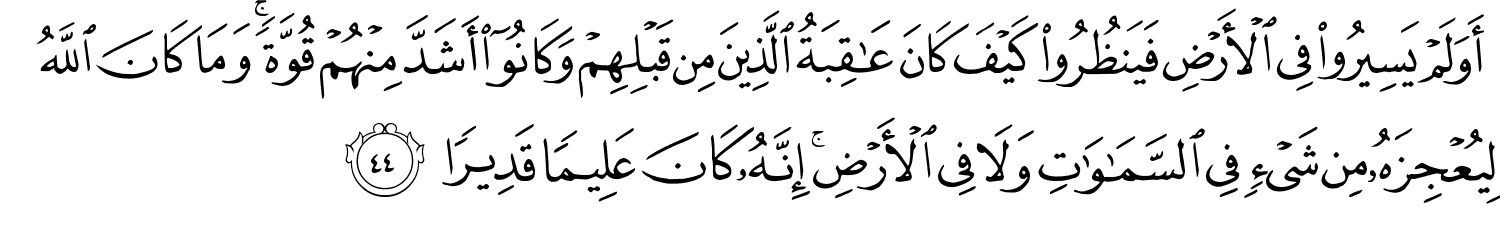 أَوَلَمْ يَسِيرُوا۟ فِى ٱلْأَرْضِ فَيَنظُرُوا۟ كَيْفَ كَانَ عَـٰقِبَةُ ٱلَّذِينَ مِن قَبْلِهِمْ وَكَانُوٓا۟ أَشَدَّ مِنْهُمْ قُوَّةً ۚ وَمَا كَانَ ٱللَّهُ
لِيُعْجِزَهُۥ مِن شَىْءٍ فِى ٱلسَّمَـٰوَٰتِ وَلَا فِى ٱلْأَرْضِ ۚ إِنَّهُۥ كَانَ عَلِيمًا قَدِيرًا ٤٤